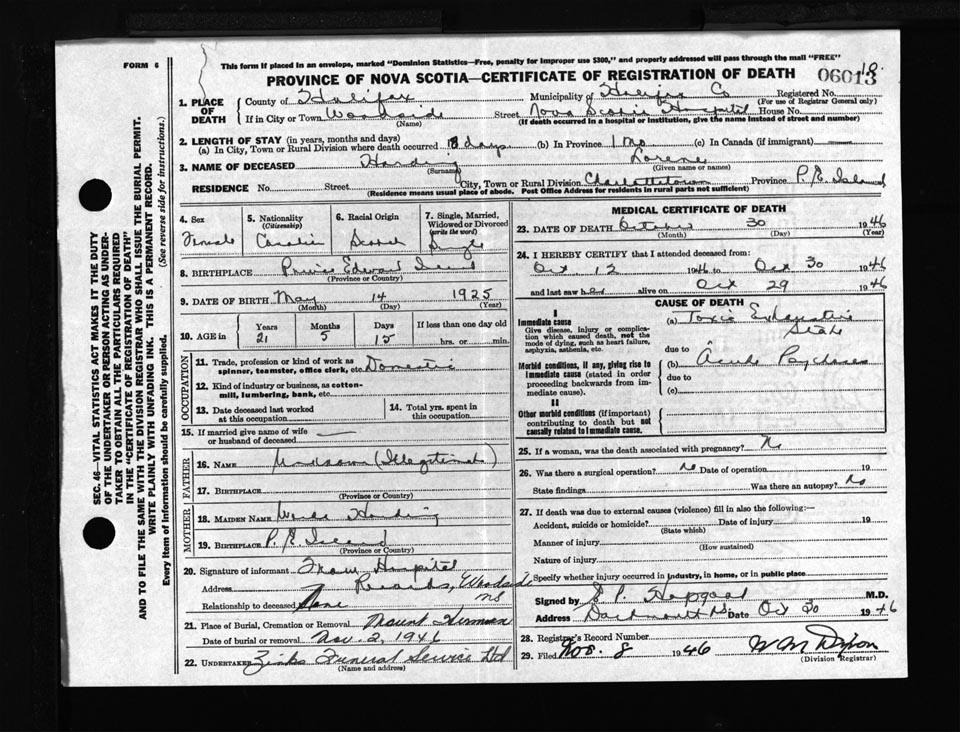 FORM 6
This form if placed in an envelope, marked "Dominion Statistics—Free, penalty for improper use $300," and properly addressed will pass through the mail "FREE"
PROVINCE OF NOVA SCOTIA—CERTIFICATE OF REGISTRATION OF DEATH 06013
1. PLACE OF DEATH
County of Halifax Municipality of Halifax Co Registered No.
(For use of Registrar General only)
If in City or Town Woodside Street Nova Scotia Hospital House No.
(Name) (If death occurred in a hospital or institution, give the name instead of street and number)
2. LENGTH OF STAY (in years, months and days)
(a) In City, Town or Rural Division where death occurred 18 days (b) In Province 1 mo (c) In Canada (if immigrant)
3. NAME OF DECEASED Harding Lorene
(Surname) (Given name or names)
RESIDENCE No. Street City, Town or Rural Division Charlottetown Province P. E. Island
(Residence means usual place of abode. Post Office Address for residents in rural parts not sufficient)
4. Sex
Female
5. Nationality (Citizenship)
Canadian
6. Racial Origin
7. Single, Married, Widowed or Divorced (write the word)
Single
8. BIRTHPLACE Prince Edward Island
(Province or Country)
9. DATE OF BIRTH May 14 1925
(Month) (Day) (Year)
10. AGE in Years Months Days If less than one day old
21 5 15 hrs. or min.
OCCUPATION
11. Trade, profession or kind of work as spinner, teamster, office clerk, etc. Domestic
12. Kind of industry or business, as cotton-mill, lumbering, bank, etc.
13. Date deceased last worked at this occupation
14. Total yrs. spent in this occupation
15. If married give name of wife or husband of deceased —
FATHER
16. NAME Unknown (Illegitimate)
17. BIRTHPLACE
(Province or Country)
MOTHER
18. MAIDEN NAME Harding
19. BIRTHPLACE P. E. Island
(Province or Country)
20. Signature of informant From Hospital
Address Records, Woodside NS
Relationship to deceased None
21. Place of Burial, Cremation or Removal Mount Hermon
Date of burial or removal Nov. 2, 1946
22. UNDERTAKER Zinks Funeral Service Ltd
(Name and address)
MEDICAL CERTIFICATE OF DEATH
23. DATE OF DEATH October 30 1946
(Month) (Day) (Year)
24. I HEREBY CERTIFY that I attended deceased from:
Oct 12 1946 to Oct 30 1946
and last saw her alive on Oct 29 1946
CAUSE OF DEATH
I
Immediate cause
Give disease, injury or complication which caused death, not the mode of dying, such as heart failure, asphyxia, asthenia, etc.
(a) Toxic Exhaustive State
due to
Morbid conditions, if any, giving rise to immediate cause (stated in order proceeding backwards from immediate cause).
(b) Acute Psychosis
due to
(c)
II
Other morbid conditions (if important) contributing to death but not causally related to immediate cause.
25. If a woman, was the death associated with pregnancy? No
26. Was there a surgical operation? No Date of operation 19
State findings Was there an autopsy? No
27. If death was due to external causes (violence) fill in also the following:—
Accident, suicide or homicide? Date of injury 19
(State which)
Manner of injury
(How sustained)
Nature of injury
Specify whether injury occurred in industry, in home, or in public place
Signed by M.D.
Address Dartmouth NS Date Oct 30 1946
28. Registrar's Record Number
29. Filed Nov. 8 1946
(Division Registrar)
SEC. 46—VITAL STATISTICS ACT MAKES IT THE DUTY
OF THE UNDERTAKER OR PERSON ACTING AS UNDER-
TAKER TO OBTAIN ALL THE PARTICULARS REQUIRED
IN THE "CERTIFICATE OF REGISTRATION OF DEATH"
AND TO FILE THE SAME WITH THE DIVISION REGISTRAR WHO SHALL ISSUE THE BURIAL PERMIT.
WRITE PLAINLY WITH UNFADING INK. THIS IS A PERMANENT RECORD.
Every item of information should be carefully supplied. (See reverse side for instructions.)